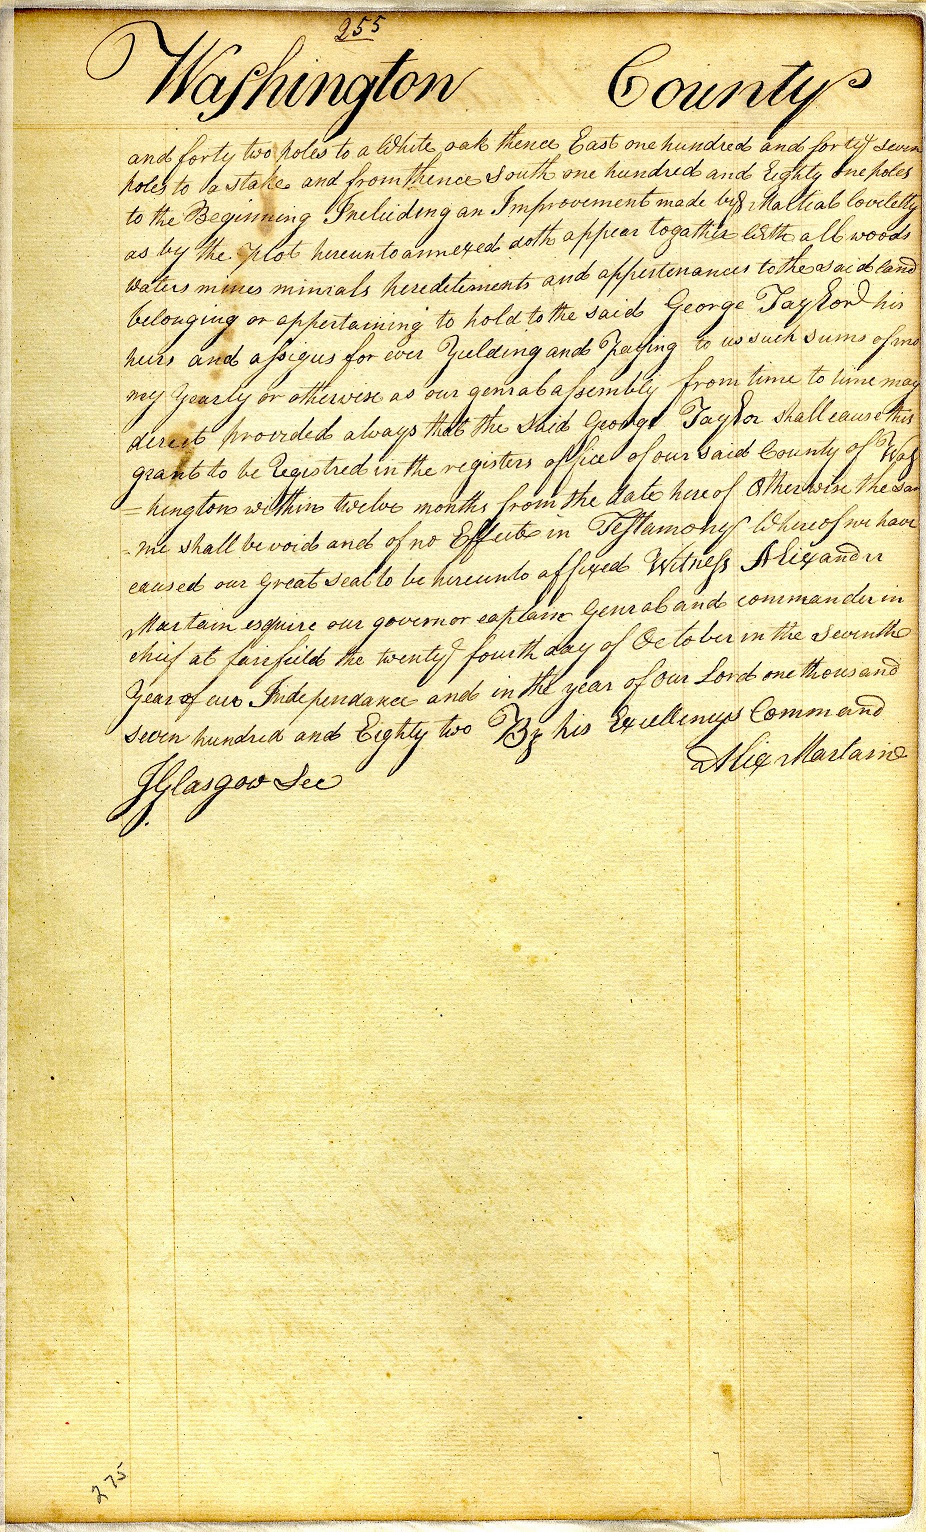 255
Washington County
and forty two poles to a White oak thence East one hundred and forty seven
poles to a stake and from thence South one hundred and Eighty one poles
to the Beginning Including an Improvement made by Martial Loveletty
as by the plot hereunto annexed doth appear togather with all woods
waters mines minrals heredetiments and appertenances to the said land
belonging or appertaining to hold to the said George Taylor his
heirs and assigns for ever Yielding and Paying to us such sums of mo
ny Yearly or otherwise as our genral assembly from time to time may
direct provided always that the said George Taylor shall cause this
grant to be Registred in the registers office of our said County of Was
=hington within twelve months from the date hereof Otherwise the Sa
=me shall be void and of no Effect in Testamony Whereof we have
caused our great seal to be hereunto affixed Witness Alixander
Martain esquire our governor captain Genral and commander in
chief at fairfield the twenty fourth day of October in the seventh
Year of our Independance and in the year of Our Lord one thousand
seven hundred and Eighty two By his Excellencys Command
Alix Martain
J Glasgow Sec
275